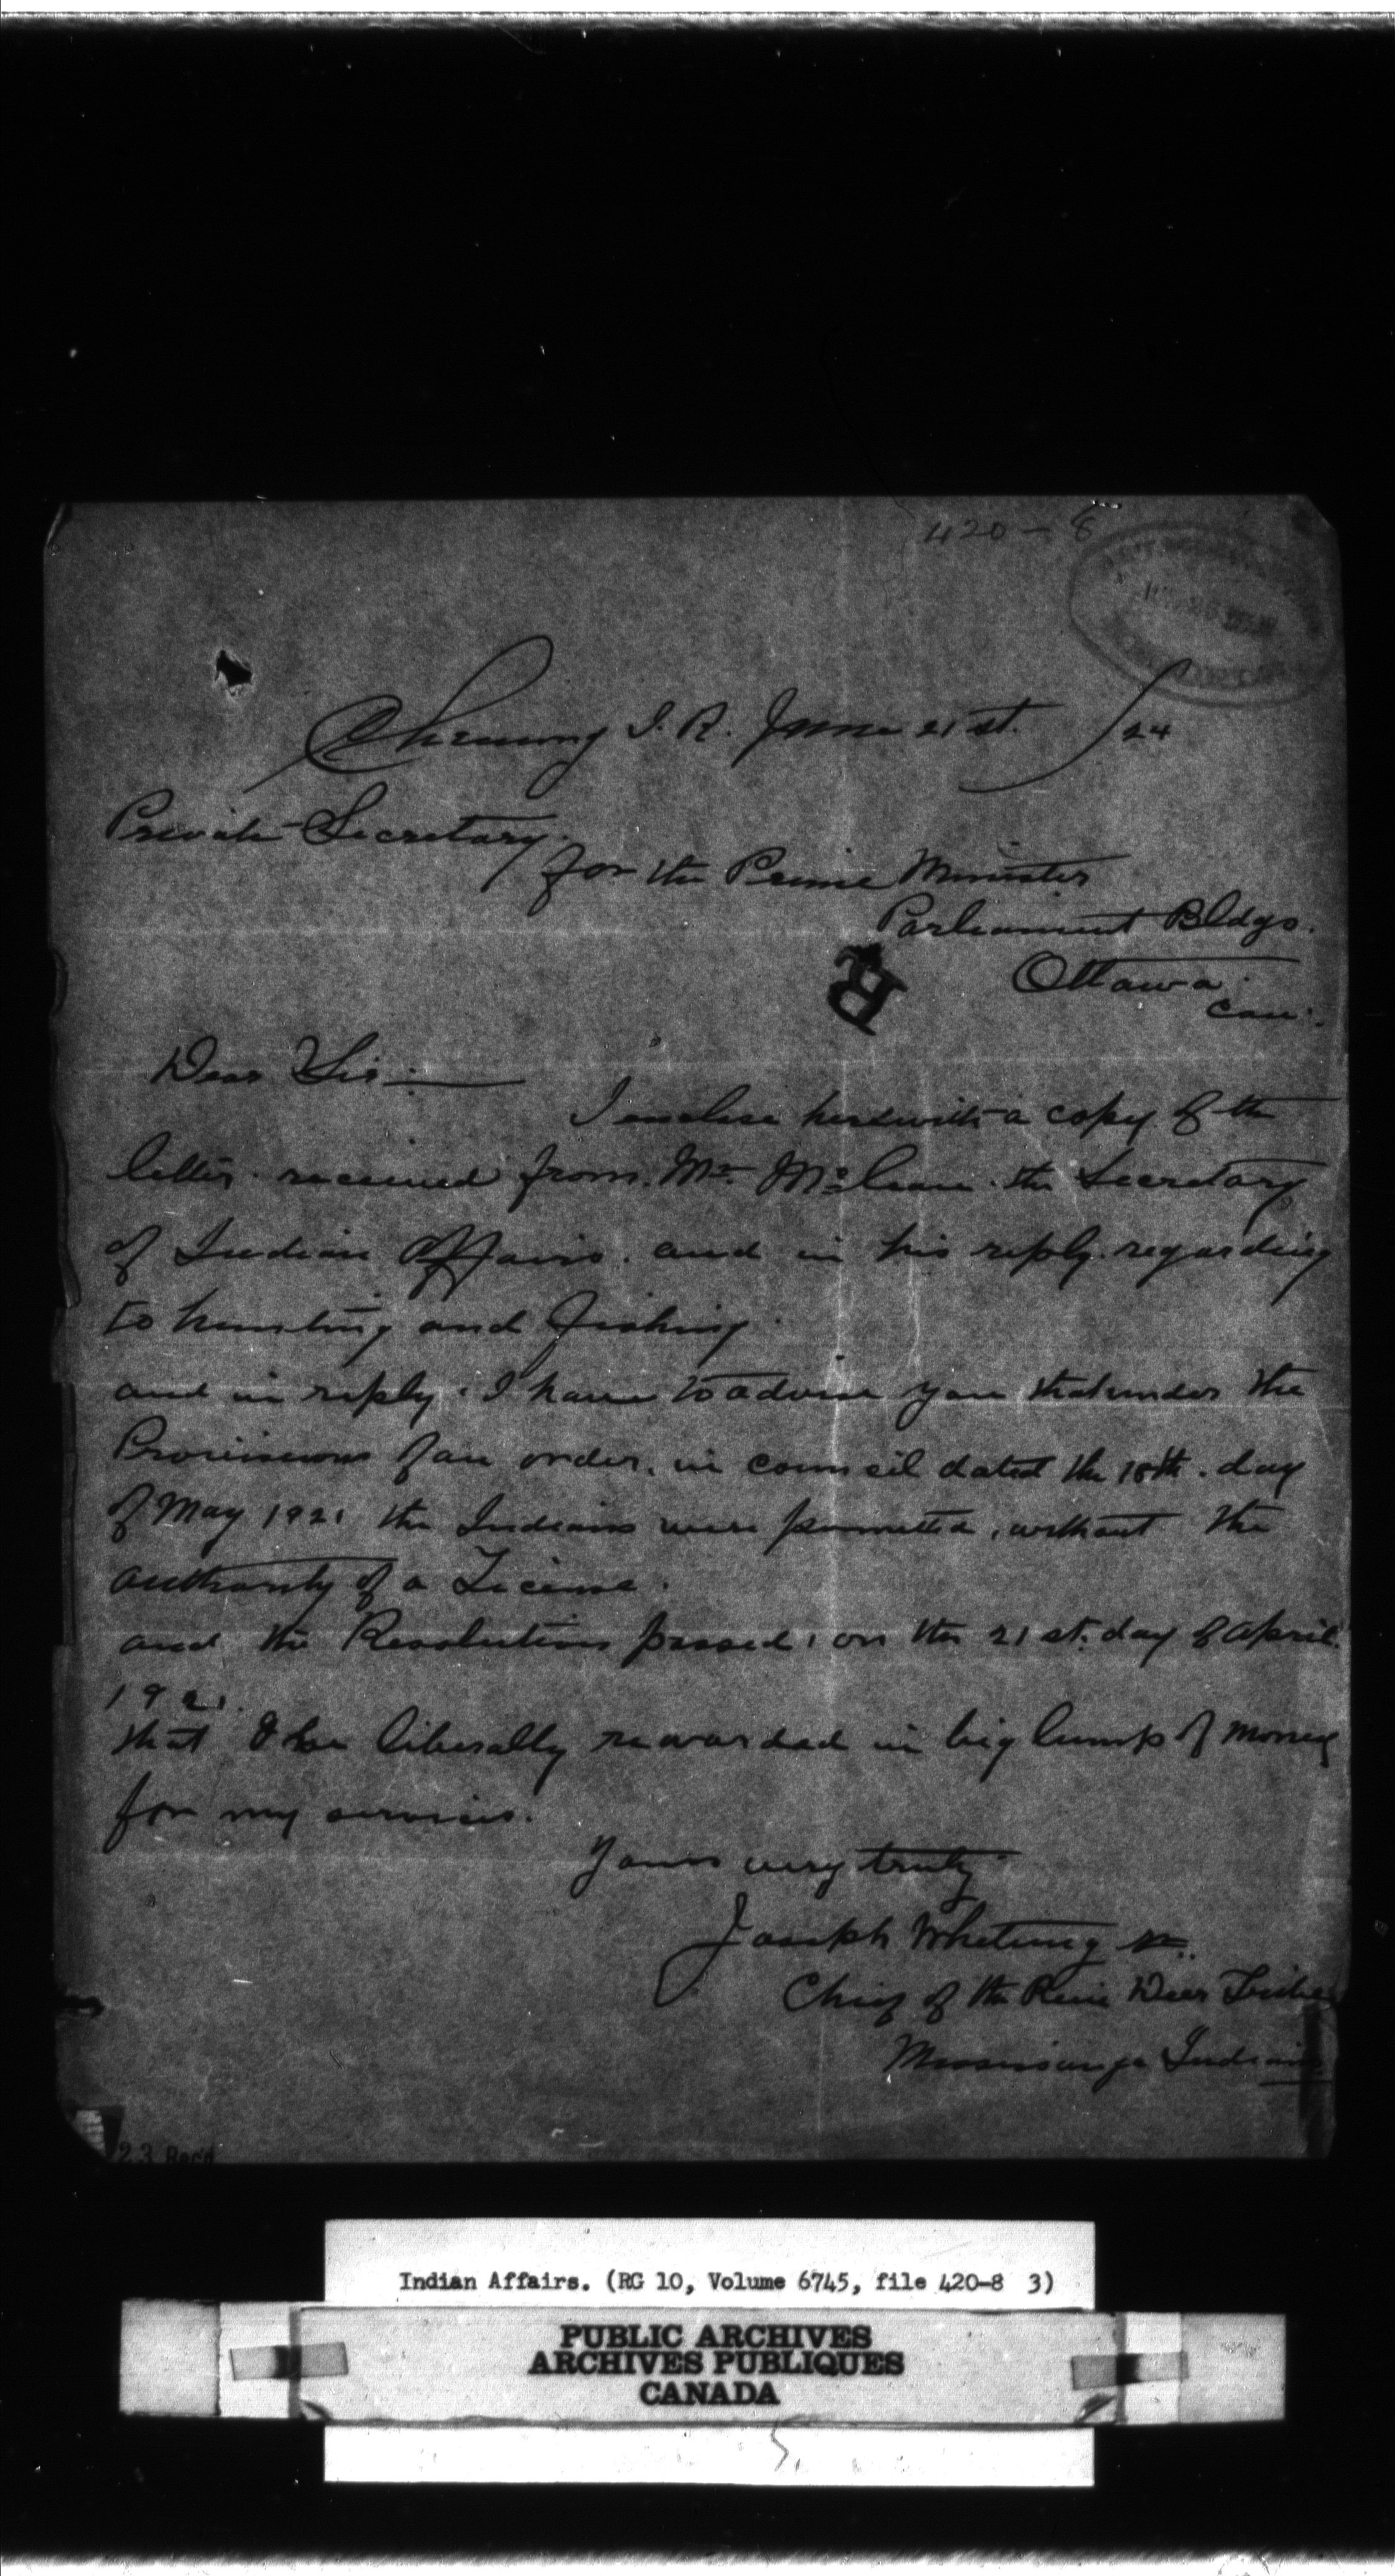 420-8
Chemung I. R. June 21st. /24
Private Secretary.
for the Prime Minister
Parliament Bldgs.
Ottawa.
Can.
R
Dear Sir:
I enclose herewith a copy of the
letter received from Mr. McLean the Secretary
of Indian Affairs. and in his reply regarding
to hunting and fishing
and in reply. I have to advise you that under the
Provisions of an order. in council dated the 18th. day
of May 1921 the Indians were permitted, without the
authority of a License.
and the Resolutions passed, on the 21st. day of April.
1921.
that I be liberally rewarded in big lump of money
for my services.
Yours very truly
Joseph Whetung sr.
Chief of the Rein Deer Tribe
Mississauga Indians
23 Recd
Indian Affairs. (RG 10, Volume 6745, file 420-8 3)
PUBLIC ARCHIVES
ARCHIVES PUBLIQUES
CANADA